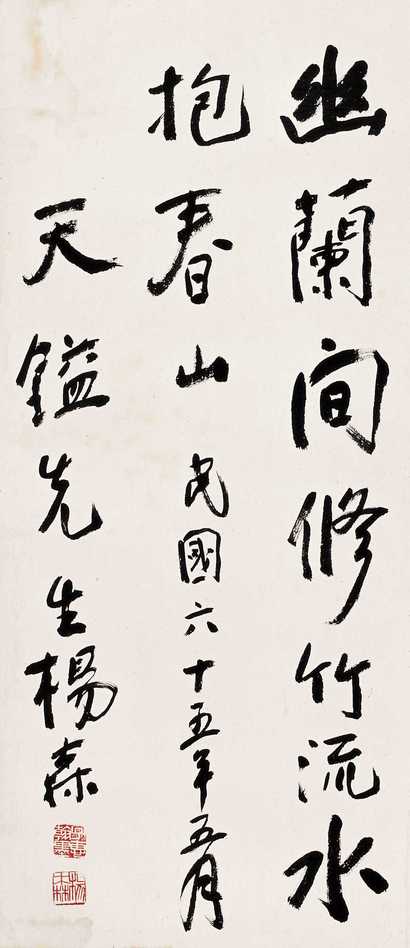 幽蘭間修竹流水
抱春山 民國六十五年五月
天鎰先生 楊森